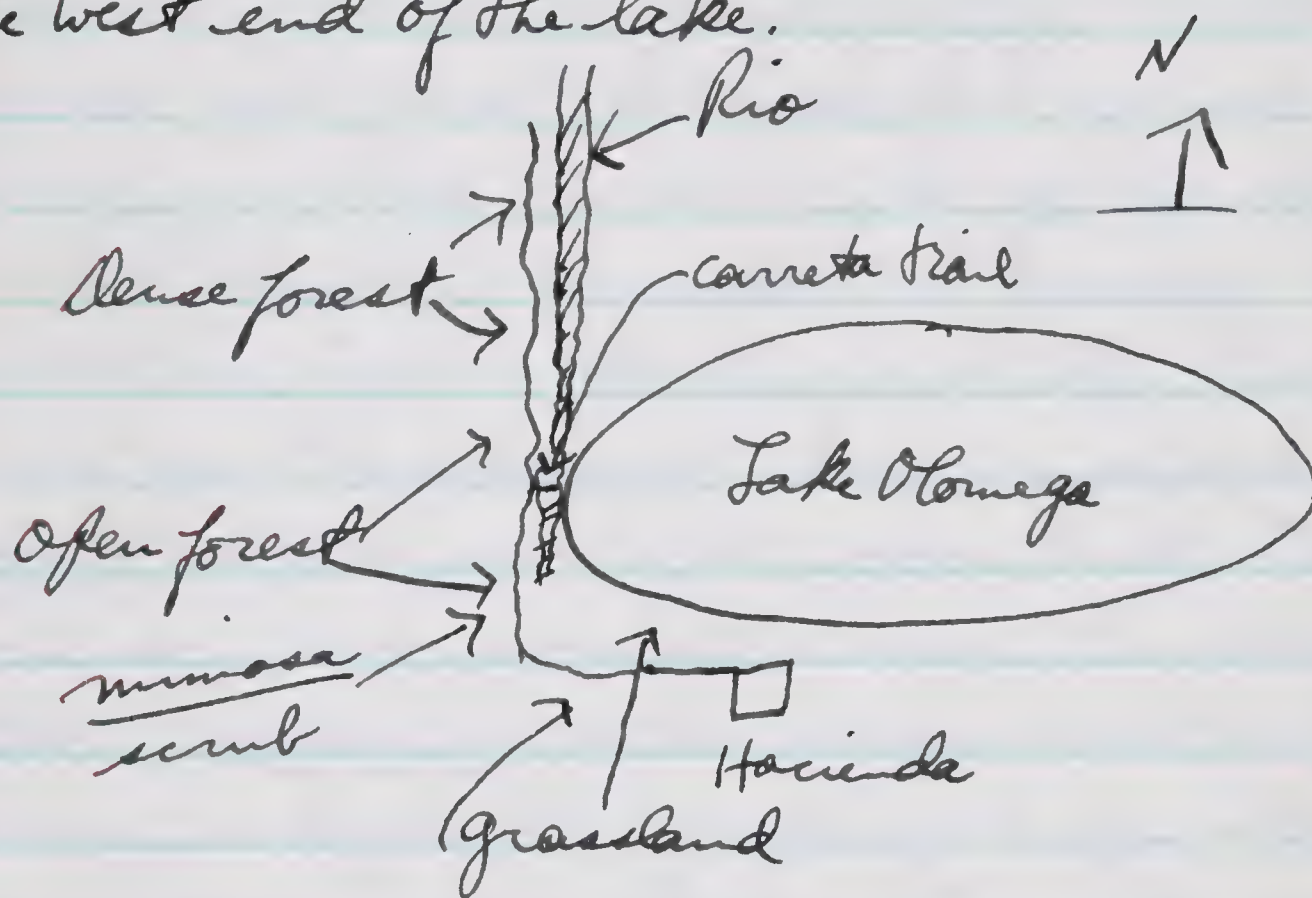 e west end of the lake.
N
Rio
Dense forest
carreta trail
Lake Olomega
Open forest
mimosa
scrub
Hacienda
grassland